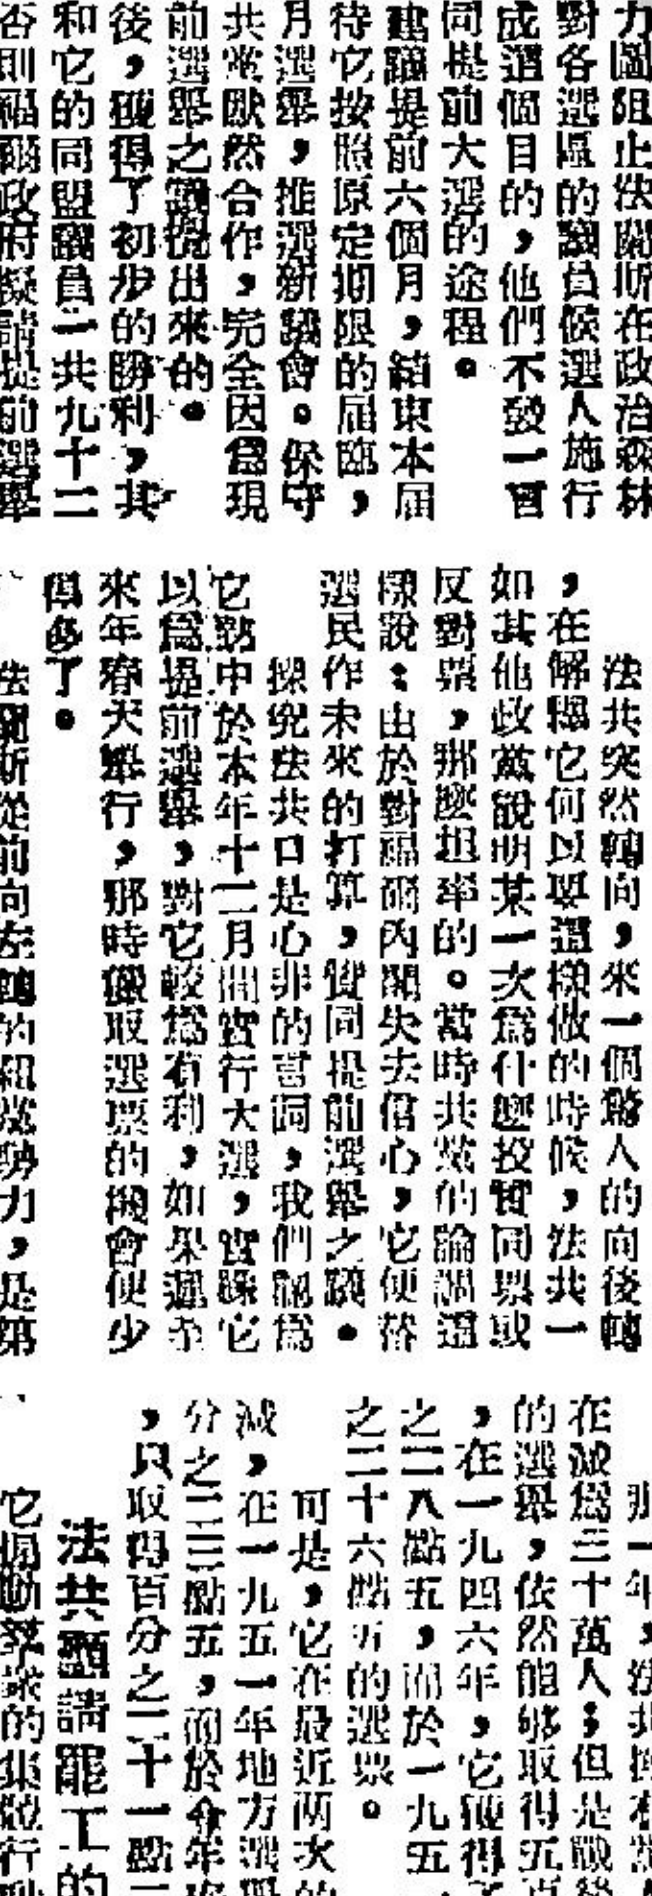 力圖阻止佛關斯在政治森林
對各選區的議員候選人施行
成這個目的,他們不發一言
同提前大選的途程。
建議提前六個月,結束本屆
待它按照原定期限的屆臨,
月選舉,推選新議會。保守
共黨默然合作,完全因為現
前選舉之議提出來的。
後,獲得了初步的勝利,其
和它的同盟議員一共九十二
否則福爾政府擬請提前選舉
法共突然轉向,來一個驚人的向後轉
,在解釋它何以要這樣做的時候,法共一
如其他政黨說明某一次為什麼投贊同票或
反對票,那麼坦率的。當時共黨的論調這
樣說:由於對福爾內閣失去信心,它便替
選民作未來的打算,贊同提前選舉之議。
探究法共口是心非的言詞,我們認為
它勢中於本年十二月間實行大選,實緣它
以為提前選舉,對它較為有利,如果遲至
來年春天舉行,那時獲取選票的機會便少
得多了。
法關斯從前向左轉的組黨勢力,是第
那一年,法共
在減為三十萬人;但是戰後
的選舉,依然能够取得五百
,在一九四六年,它獲得了
之二八點五,而於一九五一
之二十六點五的選票。
可是,它在最近兩次的
減,在一九五一年地方選舉
分之二三點五,而於今年
,只取得百分之二十一點
法共籲請罷工的
它煽動羣衆的集體行動